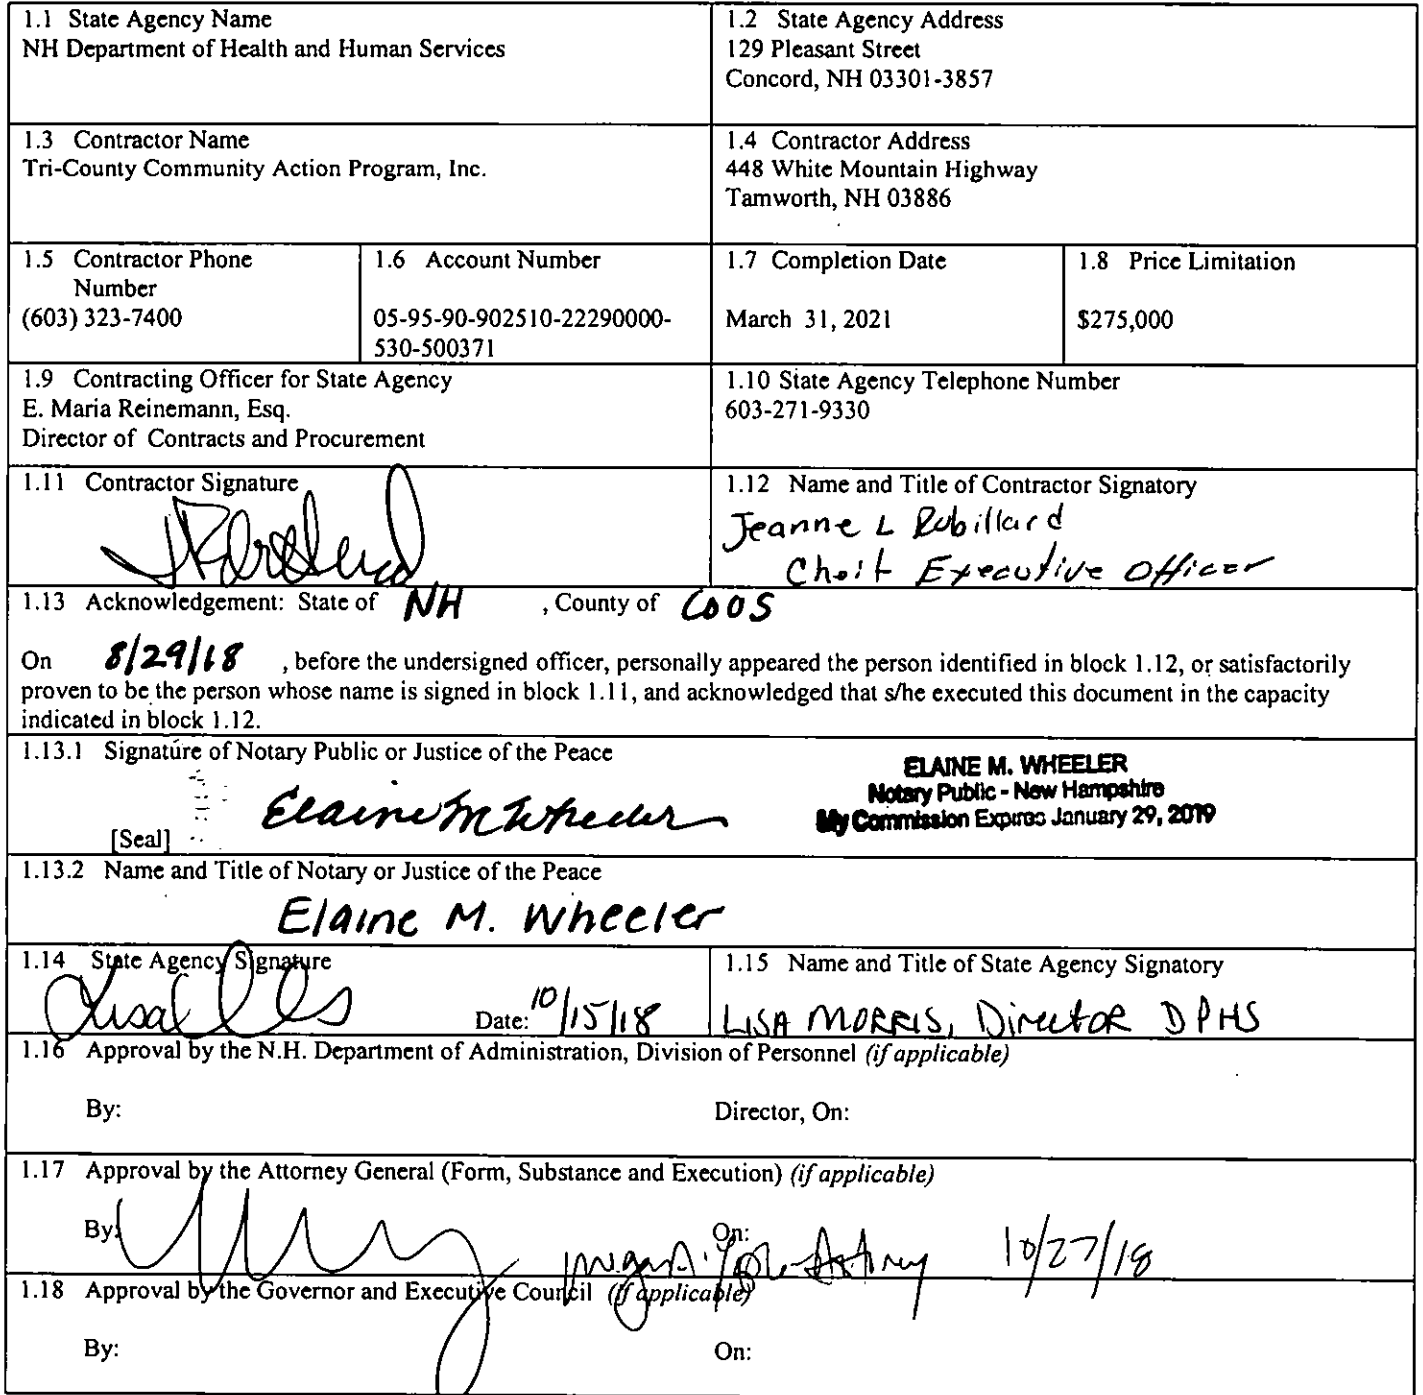 1.1 State Agency Name
NH Department of Health and Human Services
1.2 State Agency Address
129 Pleasant Street
Concord, NH 03301-3857
1.3 Contractor Name
Tri-County Community Action Program, Inc.
1.4 Contractor Address
448 White Mountain Highway
Tamworth, NH 03886
1.5 Contractor Phone
Number
(603) 323-7400
1.6 Account Number
05-95-90-902510-22290000-
530-500371
1.7 Completion Date
March 31, 2021
1.8 Price Limitation
$275,000
1.9 Contracting Officer for State Agency
E. Maria Reinemann, Esq.
Director of Contracts and Procurement
1.10 State Agency Telephone Number
603-271-9330
1.11 Contractor Signature
1.12 Name and Title of Contractor Signatory
Jeanne L Robillard
Cheif Executive Officer
1.13 Acknowledgement: State of NH , County of COOS
On 8/29/18 , before the undersigned officer, personally appeared the person identified in block 1.12, or satisfactorily
proven to be the person whose name is signed in block 1.11, and acknowledged that s/he executed this document in the capacity
indicated in block 1.12.
1.13.1 Signature of Notary Public or Justice of the Peace
Elaine M Wheeler
[Seal]
ELAINE M. WHEELER
Notary Public - New Hampshire
My Commission Expires January 29, 2019
1.13.2 Name and Title of Notary or Justice of the Peace
Elaine M. Wheeler
1.14 State Agency Signature
Date: 10/15/18
1.15 Name and Title of State Agency Signatory
LISA MORRIS, Director DPHS
1.16 Approval by the N.H. Department of Administration, Division of Personnel (if applicable)
By: Director, On:
1.17 Approval by the Attorney General (Form, Substance and Execution) (if applicable)
By: On: 10/27/18
1.18 Approval by the Governor and Executive Council (if applicable)
By: On: